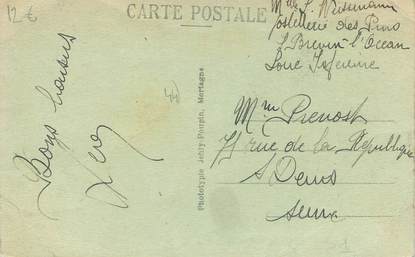 12 €
CARTE POSTALE
Hostellerie des Pins
St Brevin l'Océan
Loire Inférieure
Bons baisers
44
Phototypie Jehly-Poupin, Mortagne
Mme Prevost
rue de la République
St Denis
Seine
1